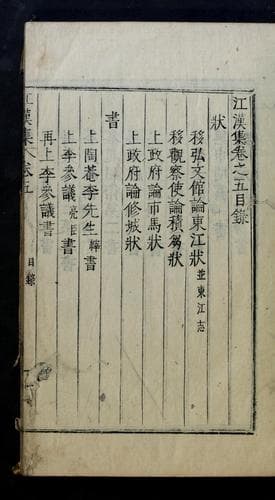 江漢集卷之五目錄
狀
移弘文館論東江狀 並東江志
移觀察使論積芻狀
上政府論市馬狀
上政府論修城狀
書
上陶菴李先生縡書
上李參議亮臣書
再上李參議書
江漢集 卷五 目錄 一